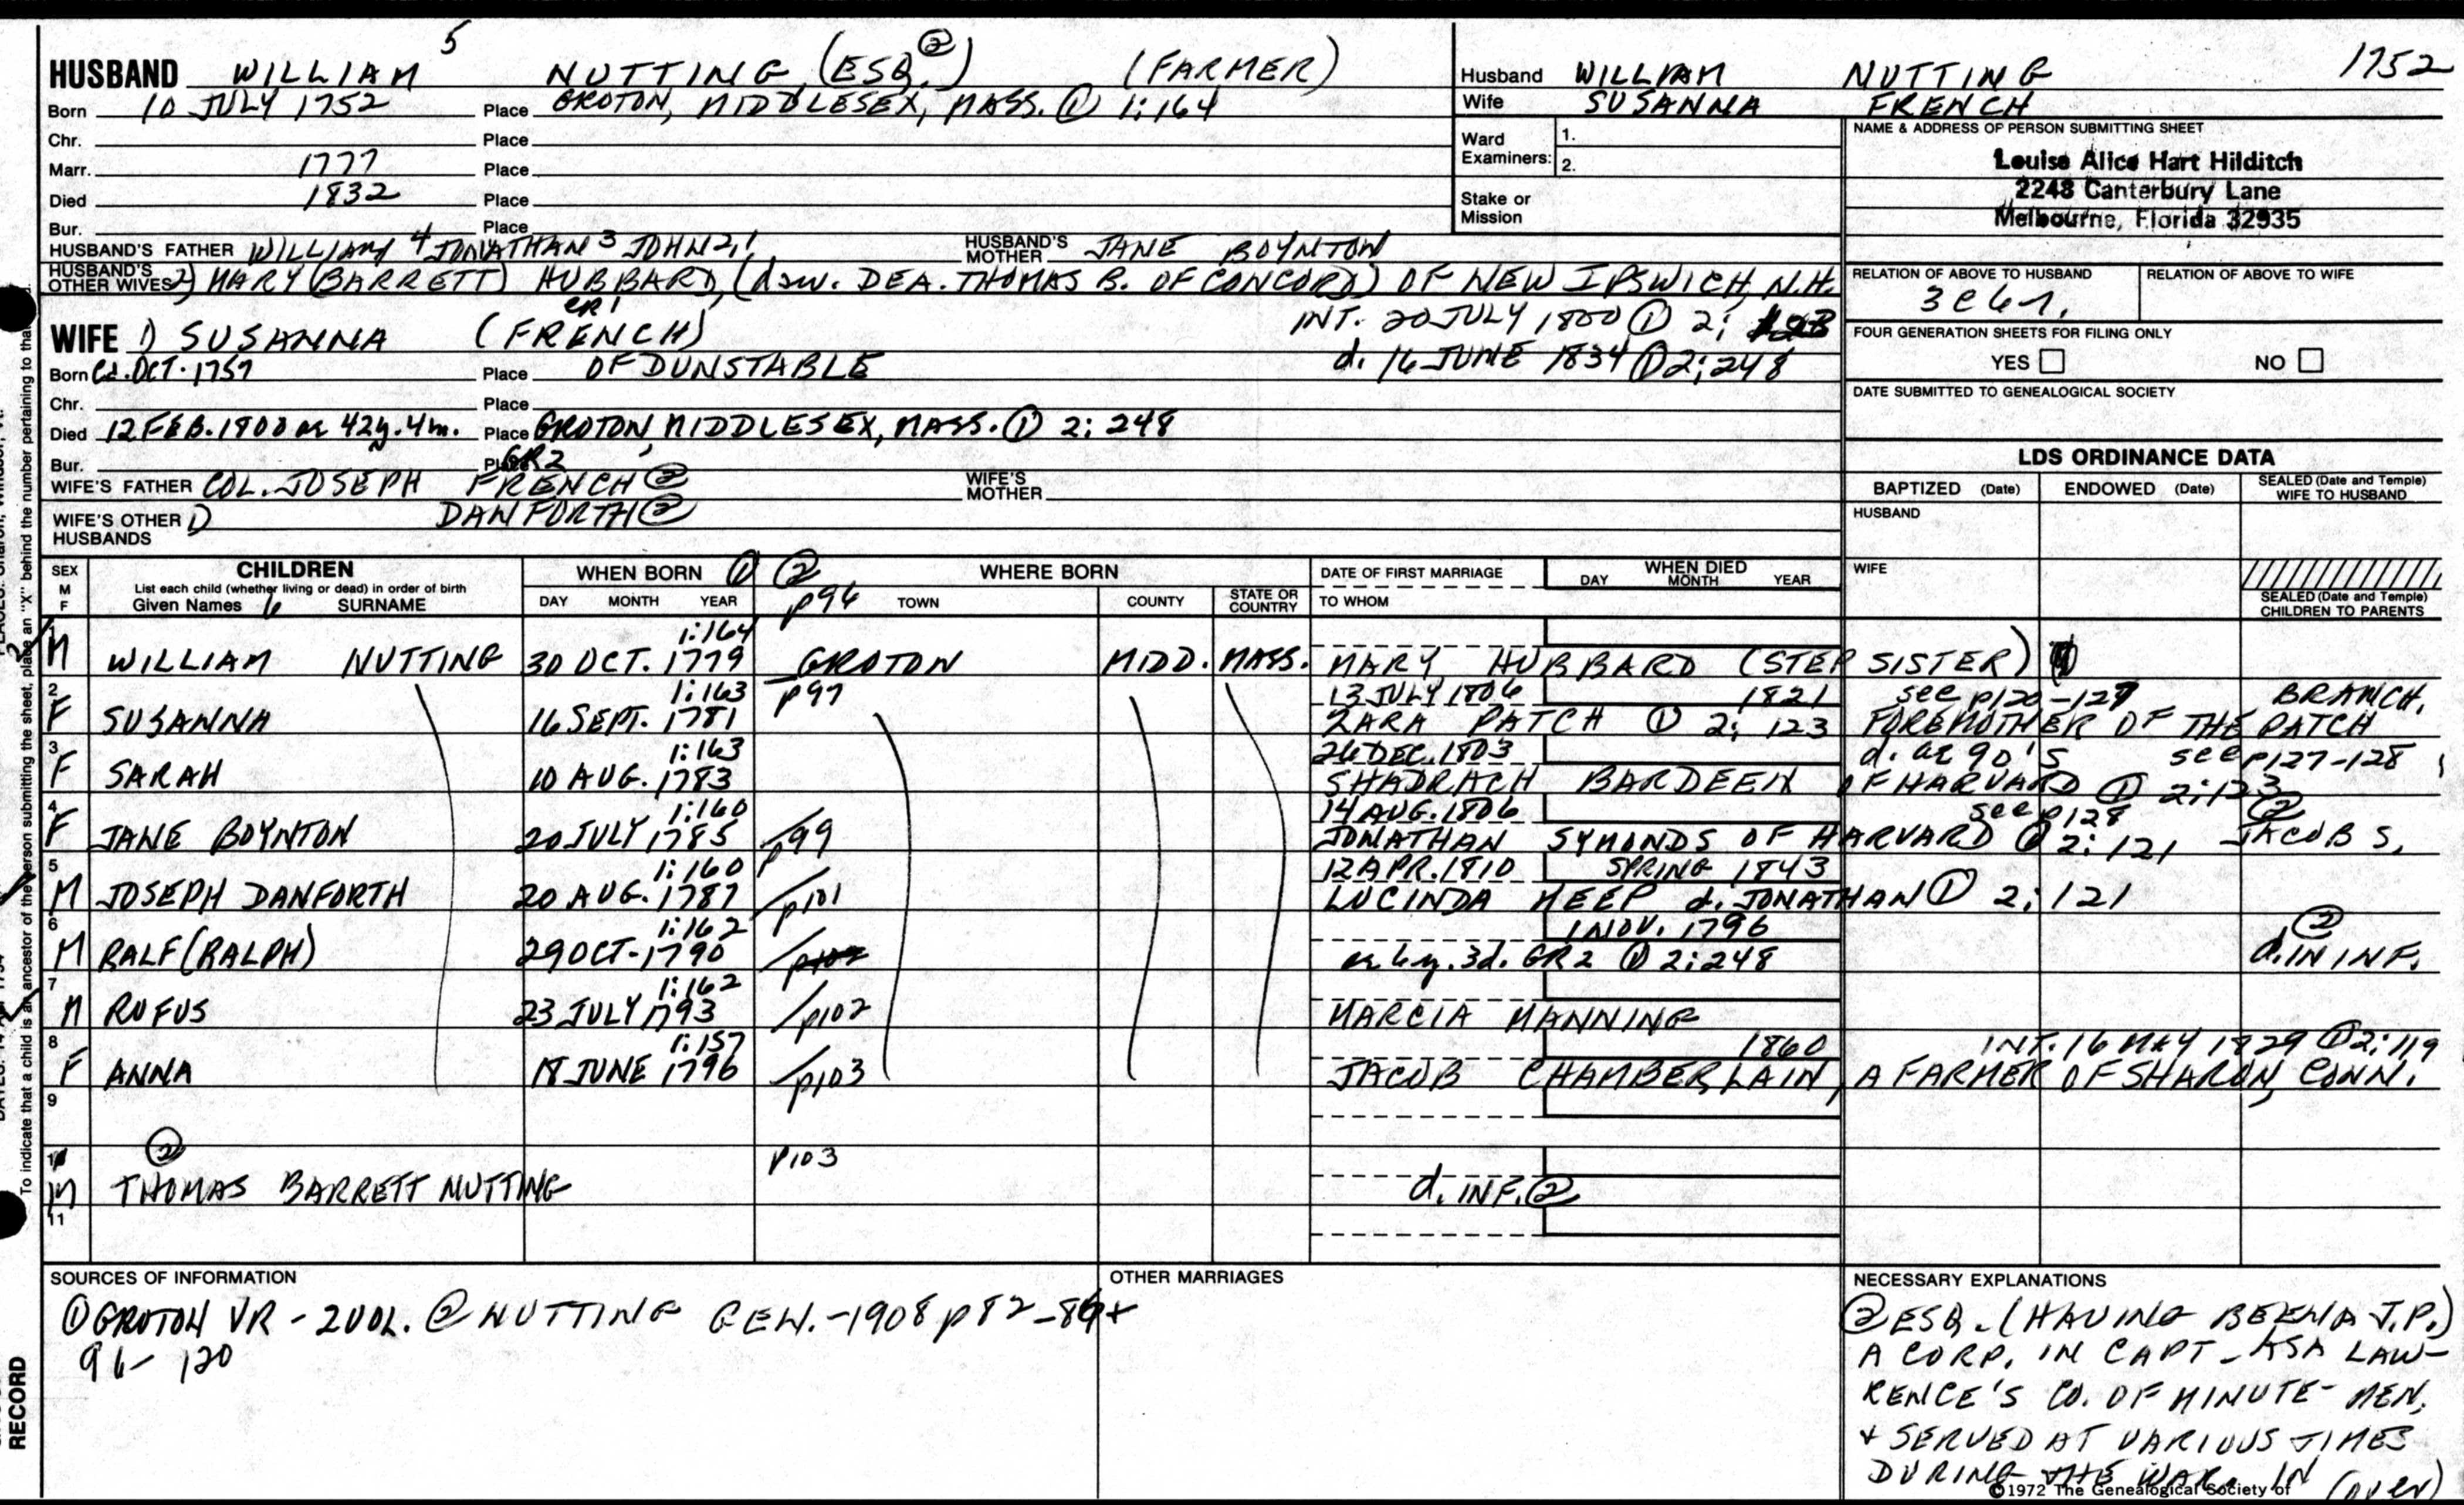 5
HUSBAND WILLIAM NUTTING (ESQ.②) (FARMER)
Born 10 JULY 1752 Place GROTON, MIDDLESEX, MASS. ① 1:164
Chr. Place
Marr. 1777 Place
Died 1832 Place
Bur. Place
HUSBAND'S FATHER WILLIAM 4 JONATHAN 3 JOHN 2,1 HUSBAND'S MOTHER JANE BOYNTON
HUSBAND'S OTHER WIVES 2) MARY (BARRETT) HUBBARD, (daw. DEA. THOMAS B. OF CONCORD) OF NEW IPSWICH, N.H.
INT. 20 JULY 1800 ① 2;
WIFE 1) SUSANNA (FRENCH)
d. 16 JUNE 1834 ① 2:248
Born Cd. OCT. 1757 Place OF DUNSTABLE
Chr. Place
Died 12 FEB. 1800 ae 42y. 4m. Place GROTON, MIDDLESEX, MASS. ① 2: 248
Bur. Place GR2
WIFE'S FATHER COL. JOSEPH FRENCH ② WIFE'S MOTHER
WIFE'S OTHER HUSBANDS 1) DANFORTH ②
Husband WILLIAM NUTTING 1752
Wife SUSANNA FRENCH
Ward Examiners: 1.
2.
Stake or Mission
NAME & ADDRESS OF PERSON SUBMITTING SHEET
Louise Alice Hart Hilditch
2248 Canterbury Lane
Melbourne, Florida 32935
RELATION OF ABOVE TO HUSBAND RELATION OF ABOVE TO WIFE
FOUR GENERATION SHEETS FOR FILING ONLY
YES NO
DATE SUBMITTED TO GENEALOGICAL SOCIETY
LDS ORDINANCE DATA
BAPTIZED (Date) ENDOWED (Date) SEALED (Date and Temple) WIFE TO HUSBAND
HUSBAND
WIFE
SEALED (Date and Temple) CHILDREN TO PARENTS
SEX M F CHILDREN WHEN BORN ① ② WHERE BORN DATE OF FIRST MARRIAGE WHEN DIED
List each child (whether living or dead) in order of birth
Given Names 6 SURNAME DAY MONTH YEAR p96 TOWN COUNTY STATE OR COUNTRY TO WHOM DAY MONTH YEAR
1:164
M WILLIAM NUTTING 30 OCT. 1779 GROTON MIDD. MASS. MARY HUBBARD (STEP SISTER)
2 1:163 p97 13 JULY 1806 1821 see p120-127 BRANCH.
F SUSANNA 16 SEPT. 1781 ZARA PATCH ① 2; 123 FOREMOTHER OF THE PATCH
3 1:163 26 DEC. 1803 d. ae 90'S see p127-128
F SARAH 10 AUG. 1783 SHADRACH BARDEEN OF HARVARD ① 2:123
4 1:160 14 AUG. 1806 see p128 ②
F JANE BOYNTON 20 JULY 1785 p99 JONATHAN SYMONDS OF HARVARD ① 2: 121 JACOB S.
5 1:160 12 APR. 1810 SPRING 1843
M JOSEPH DANFORTH 20 AUG. 1787 p101 LUCINDA HEEP d. JONATHAN ① 2; 121
6 1:162 1 NOV. 1796 ②
M RALF (RALPH) 29 OCT. 1790 p102 ae 6y. 3d. GR2 ① 2:248 d. IN INF.
7 1:162
M RUFUS 23 JULY 1793 p102 MARCIA MANNING
8 1:157 1860 INT. 16 MAY 1829 ① 2:119
F ANNA 18 JUNE 1796 p103 JACOB CHAMBERLAIN, A FARMER OF SHARON, CONN.
9
10 ② p103
M THOMAS BARRETT NUTTING d. INF. ②
11
SOURCES OF INFORMATION
① GROTON VR - 2 VOL. ② NUTTING GEN. - 1908 p 82-86+
96-120
OTHER MARRIAGES
NECESSARY EXPLANATIONS
② ESQ. (HAVING BEEN A J.P.)
A CORP. IN CAPT. ASA LAW-
RENCE'S CO. OF MINUTE-MEN,
+ SERVED AT VARIOUS TIMES
DURING THE WAR. IN (over)
©1972 The Genealogical Society of
To indicate that a child is an ancestor of the person submitting the sheet, place an "X" behind the number pertaining to that
RECORD